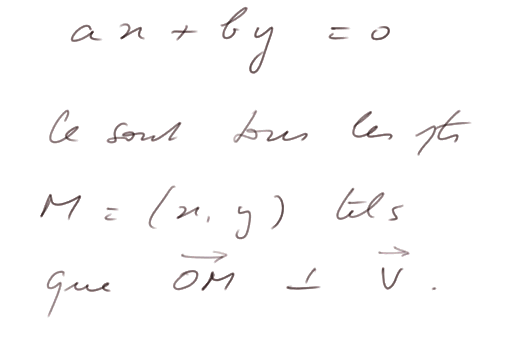 ax + by = 0
Ce sont tous les pts
M = (x, y) tels
que \overrightarrow{OM} ⊥ \overrightarrow{V}.